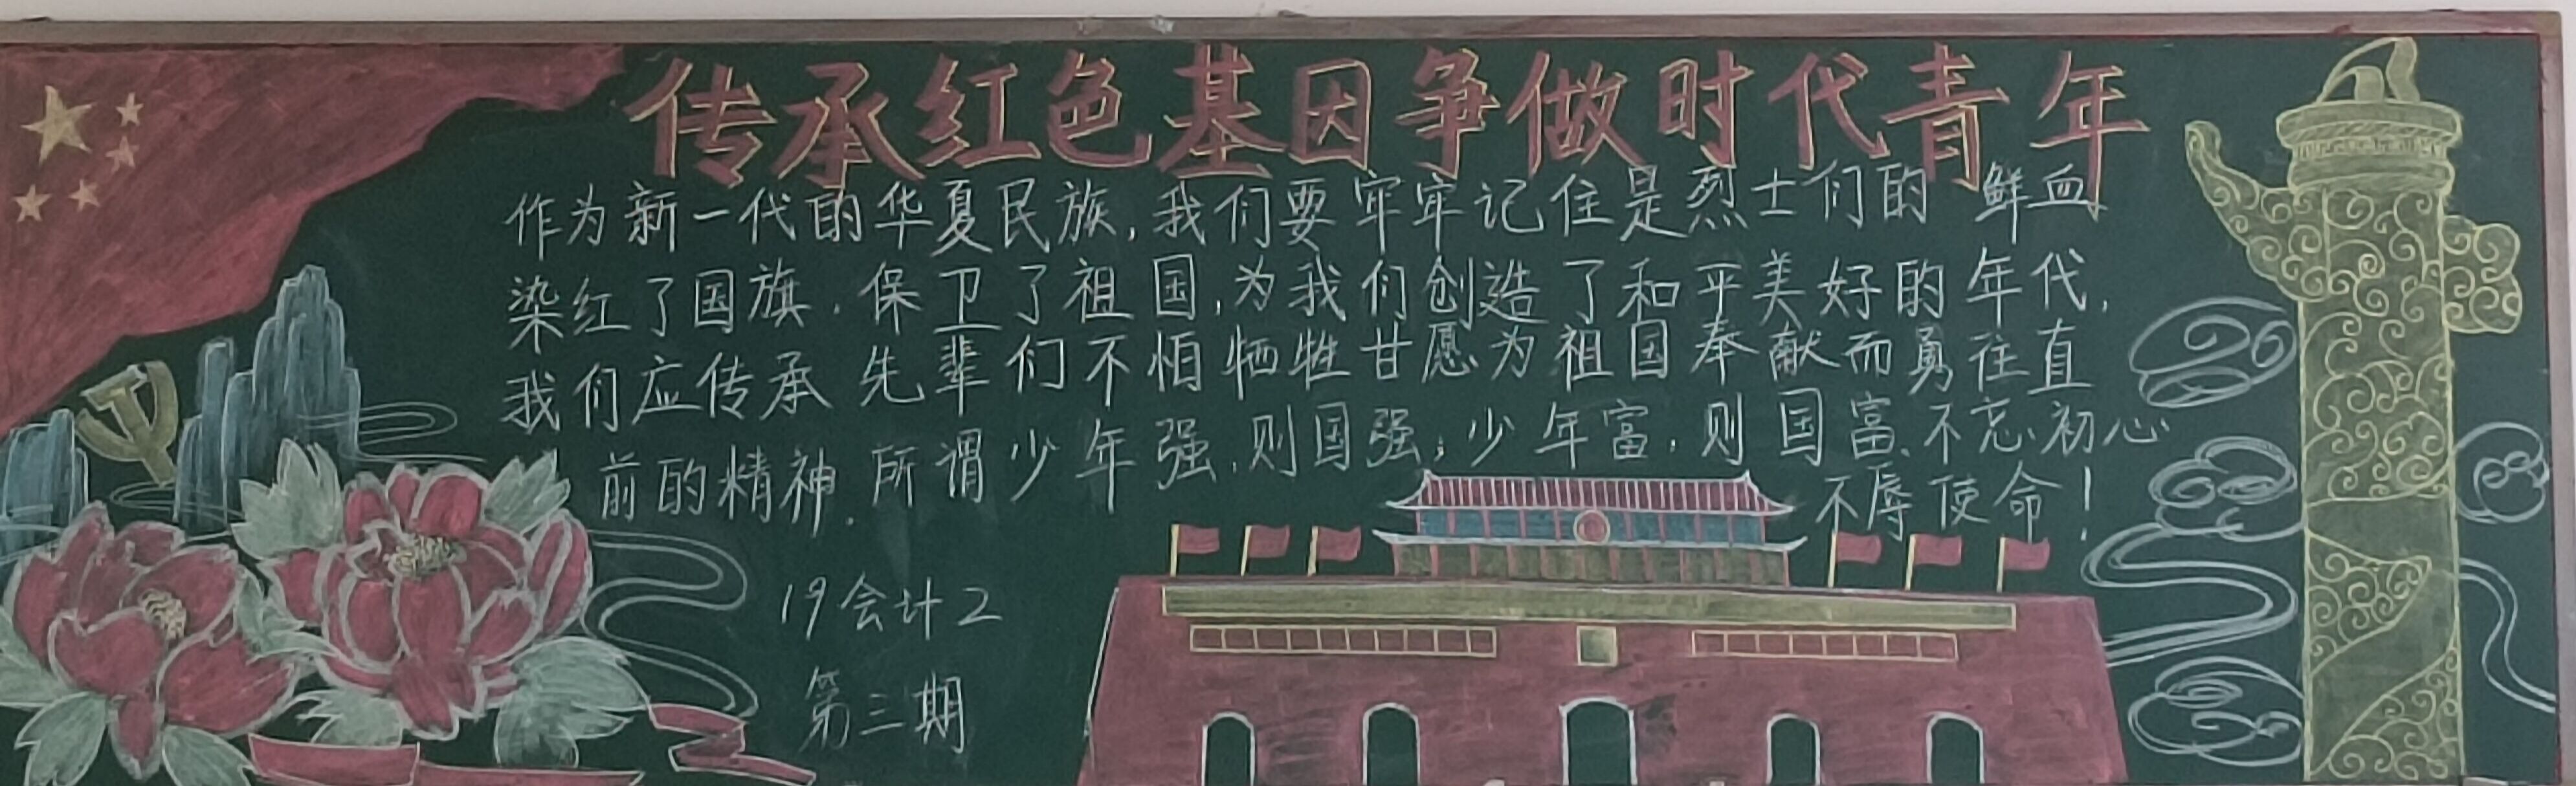 传承红色基因争做时代青年
作为新一代的华夏民族,我们要牢牢记住是烈士们的鲜血
染红了国旗,保卫了祖国,为我们创造了和平美好的年代,
我们应传承先辈们不怕牺牲甘愿为祖国奉献而勇往直
前的精神.所谓少年强,则国强;少年富,则国富、不忘初心
不辱使命!
19会计2
第三期